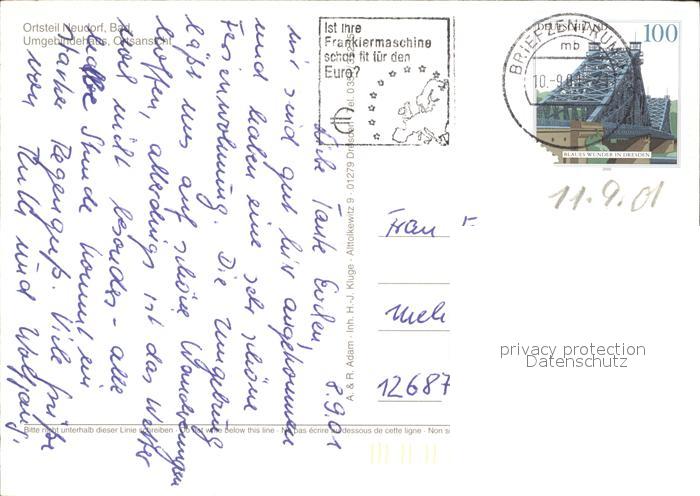 Ortsteil Neudorf, Bad,
Umgebindehaus, Ortsansicht
Ist Ihre
Frankiermaschine
schon fit für den
Euro?
BRIEFZENTRUM
mb
10.-9.0
DEUTSCHLAND
100
BLAUES WUNDER IN DRESDEN
2000
11.9.01
8.9.01
Liebe Tante Evchen,
wir sind gut hier angekommen
und haben eine sehr schöne
Ferienwohnung. Die Umgebung
läßt uns auf schöne Wanderungen
hoffen, allerdings ist das Wetter
noch nicht besonders - alle
halbe Stunde kommt ein
starker Regenguß. Viele Grüße
von Ruth und Wolfgang.
A. & R. Adam - Inh. H.-J. Kluge - Alttolkewitz 9 - 01279 Dresden - Tel. 035
Frau
12687
Bitte nicht unterhalb dieser Linie schreiben - Do not write below this line - Ne pas écrire au-dessous de cette ligne - Non s
privacy protection
Datenschutz